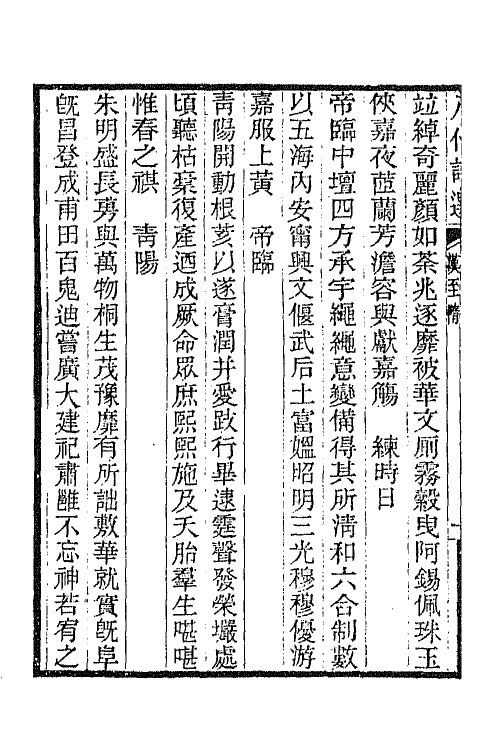 八代詩選 漢至隋
竝綽奇麗顏如荼兆逐靡被華文厠霧縠曳阿錫佩珠玉
俠嘉夜茝蘭芳澹容與獻嘉觴 練時日
帝臨中壇四方承宇繩繩意變備得其所淸和六合制數
以五海內安甯興文偃武后土富媼昭明三光穆穆優游
嘉服上黃 帝臨
靑陽開動根荄以遂膏潤并愛跂行畢逮霆聲發榮壧處
頃聽枯槀復產迺成厥命眾庶熙熙施及夭胎羣生啿啿
惟春之祺 靑陽
朱明盛長旉與萬物桐生茂豫靡有所詘敷華就實旣阜
旣昌登成甫田百鬼迪嘗廣大建祀肅雝不忘神若宥之